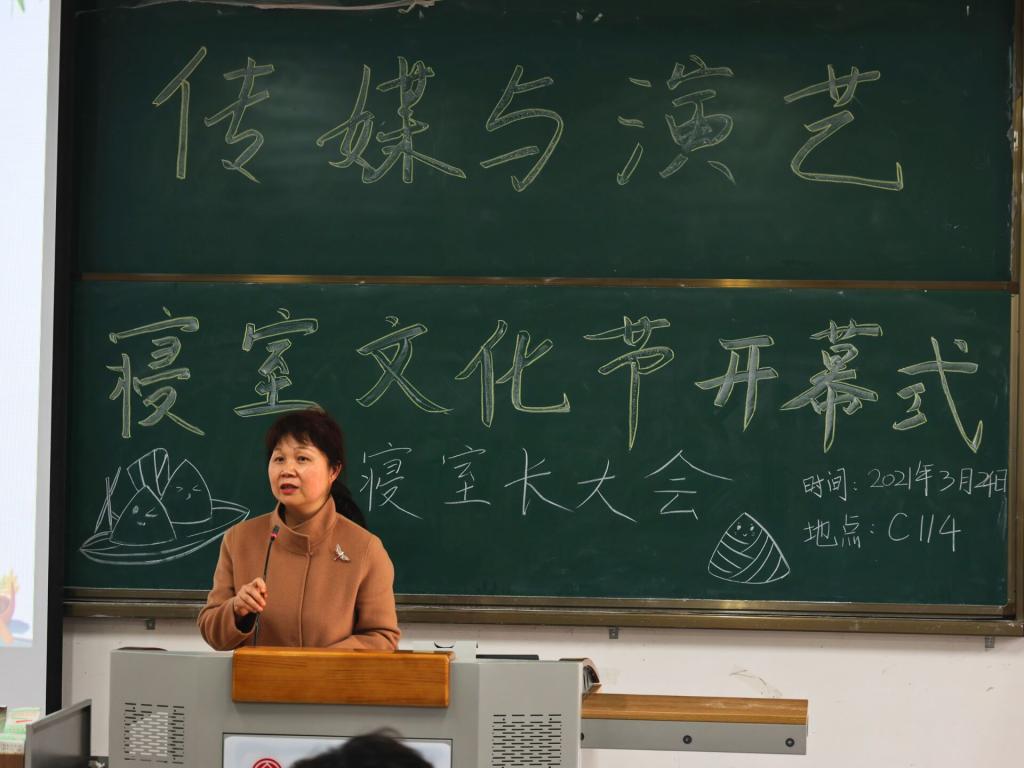 传媒与演艺
寝室文化节开幕式
寝室长大会
时间：2021年3月24日
地点：C114